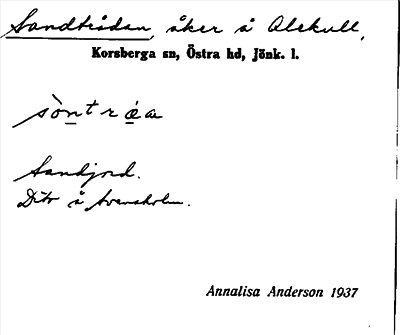 Sandtrådan, åker å Alekull,
Korsberga sn, Östra hd, Jönk. l.
sòntráa
Sandjord.
Dito å Svensholm.
Annalisa Anderson 1937